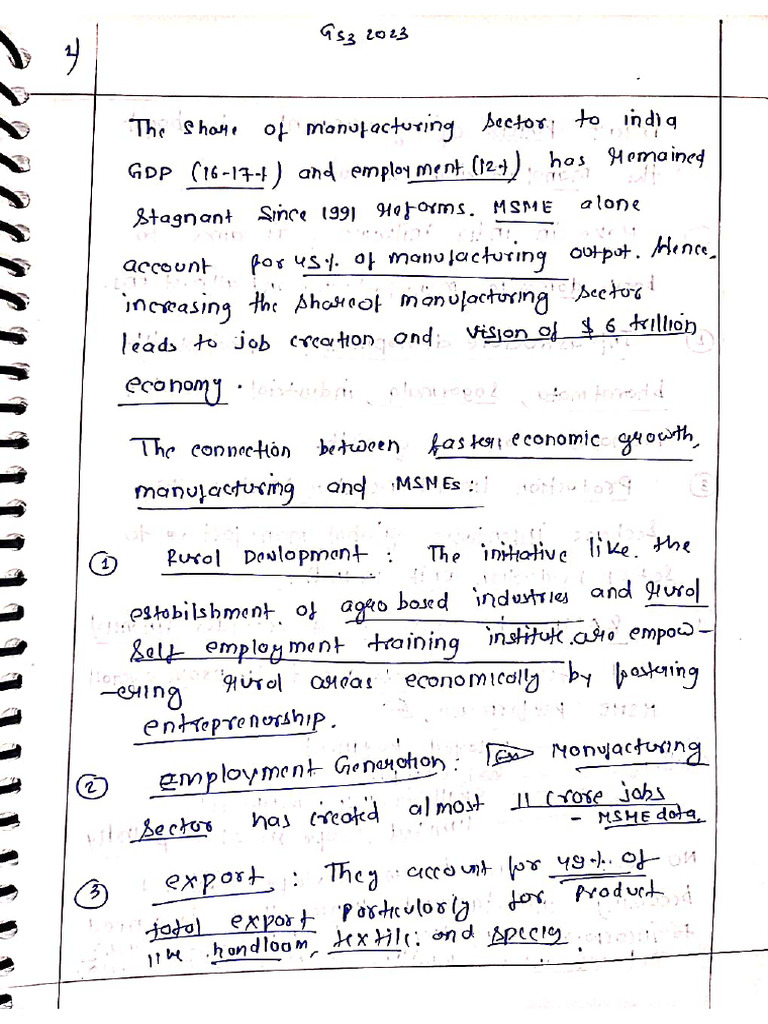 GS3 2023
4)
The share of manufacturing sector to india
GDP (16-17%) and employment (12%) has remained
stagnant since 1991 reforms. MSME alone
account for 45% of manufacturing output. Hence,
increasing the share of manufacturing sector
leads to job creation and vision of $ 6 trillion
economy.
The connection between faster economic growth,
manufacturing and MSMEs:
① Rurol Devlopment : The initiative like the
estobilshment of agro based industries and rural
self employment training institute are empow-
-ering rural areas economically by fostering
entreprenorship.
② employment Generation : Ex Manufacturing
sector has created almost 11 crore jobs
- MSME data,
③ export : They account for 49% of
total export particularly for product
like handloom, textile and